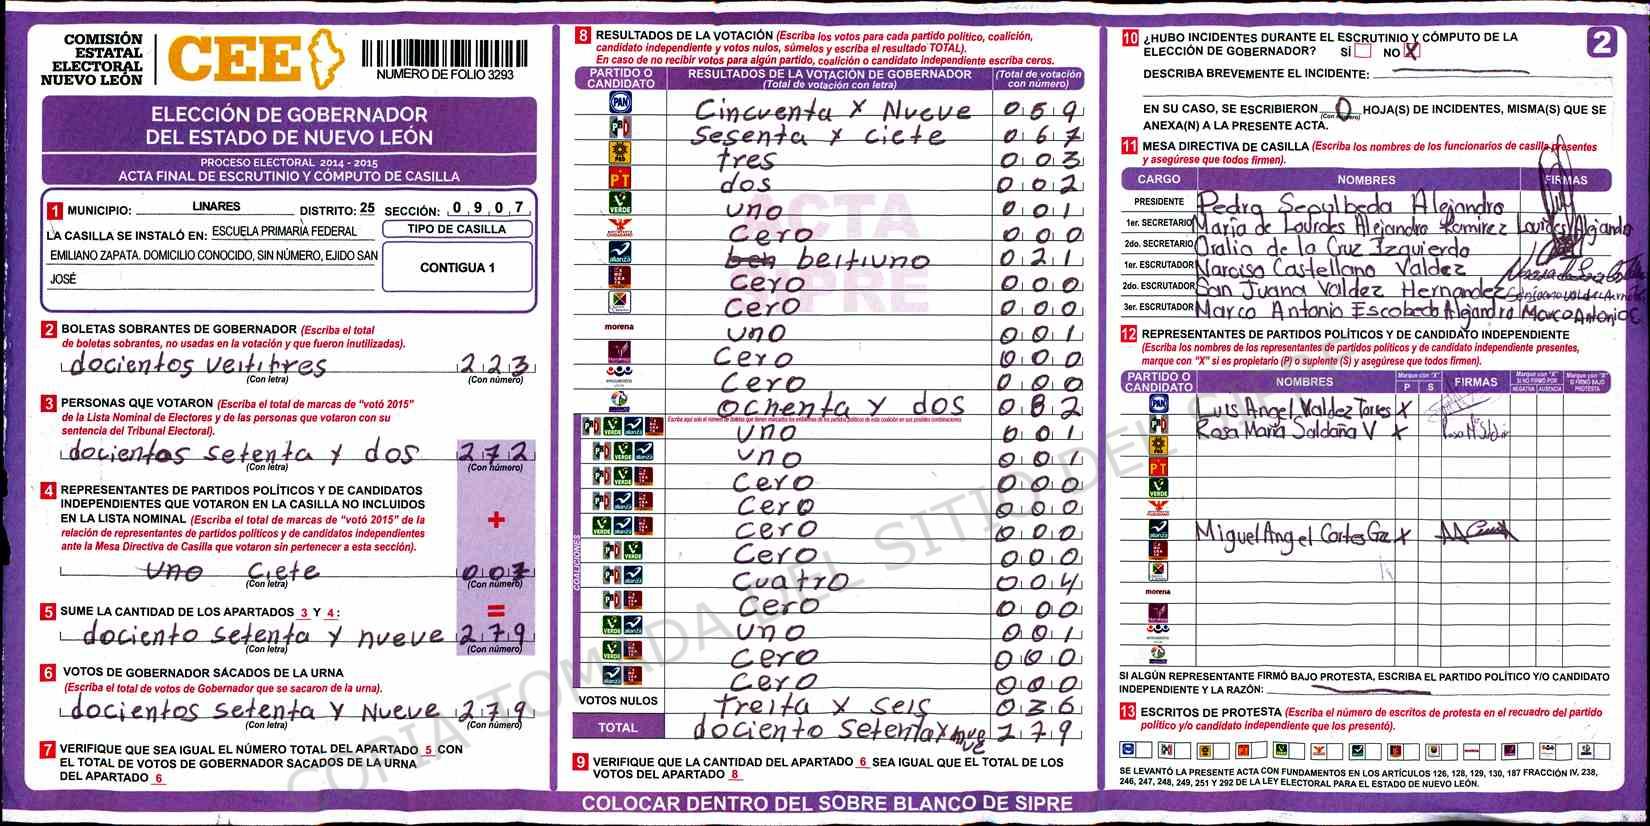 COMISIÓN
ESTATAL
ELECTORAL
NUEVO LEÓN
CEE
NUMERO DE FOLIO 3293
ELECCIÓN DE GOBERNADOR
DEL ESTADO DE NUEVO LEÓN
PROCESO ELECTORAL 2014 - 2015
ACTA FINAL DE ESCRUTINIO Y CÓMPUTO DE CASILLA
1 MUNICIPIO: LINARES DISTRITO: 25 SECCIÓN: 0 9 0 7
LA CASILLA SE INSTALÓ EN: ESCUELA PRIMARIA FEDERAL
EMILIANO ZAPATA. DOMICILIO CONOCIDO, SIN NÚMERO, EJIDO SAN
JOSÉ
TIPO DE CASILLA
CONTIGUA 1
2 BOLETAS SOBRANTES DE GOBERNADOR (Escriba el total
de boletas sobrantes, no usadas en la votación y que fueron inutilizadas).
docientos veititres 2 2 3
(Con letra) (Con número)
3 PERSONAS QUE VOTARON (Escriba el total de marcas de "votó 2015"
de la Lista Nominal de Electores y de las personas que votaron con su
sentencia del Tribunal Electoral).
docientos setenta y dos 2 7 2
(Con letra) (Con número)
4 REPRESENTANTES DE PARTIDOS POLÍTICOS Y DE CANDIDATOS
INDEPENDIENTES QUE VOTARON EN LA CASILLA NO INCLUIDOS
EN LA LISTA NOMINAL (Escriba el total de marcas de "votó 2015" de la
relación de representantes de partidos políticos y de candidatos independientes
ante la Mesa Directiva de Casilla que votaron sin pertenecer a esta sección).
+
uno Ciete 0 0 7
(Con letra) (Con número)
5 SUME LA CANTIDAD DE LOS APARTADOS 3 Y 4:
=
dociento setenta y nueve 2 7 9
(Con letra) (Con número)
6 VOTOS DE GOBERNADOR SACADOS DE LA URNA
(Escriba el total de votos de Gobernador que se sacaron de la urna).
docientos setenta y Nueve 2 7 9
(Con letra) (Con número)
7 VERIFIQUE QUE SEA IGUAL EL NÚMERO TOTAL DEL APARTADO 5 CON
EL TOTAL DE VOTOS DE GOBERNADOR SACADOS DE LA URNA
DEL APARTADO 6
8 RESULTADOS DE LA VOTACIÓN (Escriba los votos para cada partido político, coalición,
candidato independiente y votos nulos, súmelos y escriba el resultado TOTAL).
En caso de no recibir votos para algún partido, coalición o candidato independiente escriba ceros.
PARTIDO O CANDIDATO
RESULTADOS DE LA VOTACIÓN DE GOBERNADOR
(Total de votación con letra)
(Total de votación con número)
PAN Cincuenta y Nueve 0 5 9
PRI Sesenta y ciete 0 6 7
PRD tres 0 0 3
PT dos 0 0 2
VERDE uno 0 0 1
Cero 0 0 0
alianza beh beitiuno 0 2 1
Cero 0 0 0
Cero 0 0 0
morena uno 0 0 1
Cero 0 0 0
Cero 0 0 0
ochenta y dos 0 8 2
COALICIONES
uno 0 0 1
uno 0 0 1
Cero 0 0 0
Cero 0 0 0
Cero 0 0 0
Cero 0 0 0
Cuatro 0 0 4
Cero 0 0 0
uno 0 0 1
Cero 0 0 0
Cero 0 0 0
VOTOS NULOS treita y seis 0 3 6
TOTAL dociento setenta y nueve 2 7 9
ACTA
SIPRE
9 VERIFIQUE QUE LA CANTIDAD DEL APARTADO 6 SEA IGUAL QUE EL TOTAL DE LOS
VOTOS DEL APARTADO 8
COLOCAR DENTRO DEL SOBRE BLANCO DE SIPRE
COPIA TOMADA DEL SITIO DEL SIPRE
2
10 ¿HUBO INCIDENTES DURANTE EL ESCRUTINIO Y CÓMPUTO DE LA
ELECCIÓN DE GOBERNADOR? SÍ NO X
DESCRIBA BREVEMENTE EL INCIDENTE:
EN SU CASO, SE ESCRIBIERON 0 HOJA(S) DE INCIDENTES, MISMA(S) QUE SE
(Con número)
ANEXA(N) A LA PRESENTE ACTA.
11 MESA DIRECTIVA DE CASILLA (Escriba los nombres de los funcionarios de casilla presentes
y asegúrese que todos firmen).
CARGO NOMBRES FIRMAS
PRESIDENTE Pedro Sepulbeda Alejandro
1er. SECRETARIO María de Lourdes Alejandro Ramirez Lourdes Alejandro
2do. SECRETARIO Oralia de la Cruz Izquierdo
1er. ESCRUTADOR Narciso Castellano Valdez
2do. ESCRUTADOR San Juana Valdez Hernandez
3er. ESCRUTADOR Marco Antonio Escobedo Alejandro Marco Antonio E
12 REPRESENTANTES DE PARTIDOS POLÍTICOS Y DE CANDIDATO INDEPENDIENTE
(Escriba los nombres de los representantes de partidos políticos y de candidato independiente presentes,
marque con "X" si es propietario (P) o suplente (S) y asegúrese que todos firmen).
PARTIDO O CANDIDATO
NOMBRES
Marque con "X"
P S
FIRMAS
Marque con "X" SI NO FIRMÓ POR
NEGATIVA AUSENCIA
Marque con "X" SI FIRMÓ BAJO PROTESTA
PAN Luis Angel Valdez Torres X
PRI Rosa María Saldaña V X
PRD
PT
VERDE
alianza Miguel Angel Cortes Gza X
morena
SI ALGÚN REPRESENTANTE FIRMÓ BAJO PROTESTA, ESCRIBA EL PARTIDO POLÍTICO Y/O CANDIDATO
INDEPENDIENTE Y LA RAZÓN:
13 ESCRITOS DE PROTESTA (Escriba el número de escritos de protesta en el recuadro del partido
político y/o candidato independiente que los presentó).
SE LEVANTÓ LA PRESENTE ACTA CON FUNDAMENTOS EN LOS ARTÍCULOS 126, 128, 129, 130, 187 FRACCIÓN IV, 238,
246, 247, 248, 249, 251 Y 292 DE LA LEY ELECTORAL PARA EL ESTADO DE NUEVO LEÓN.